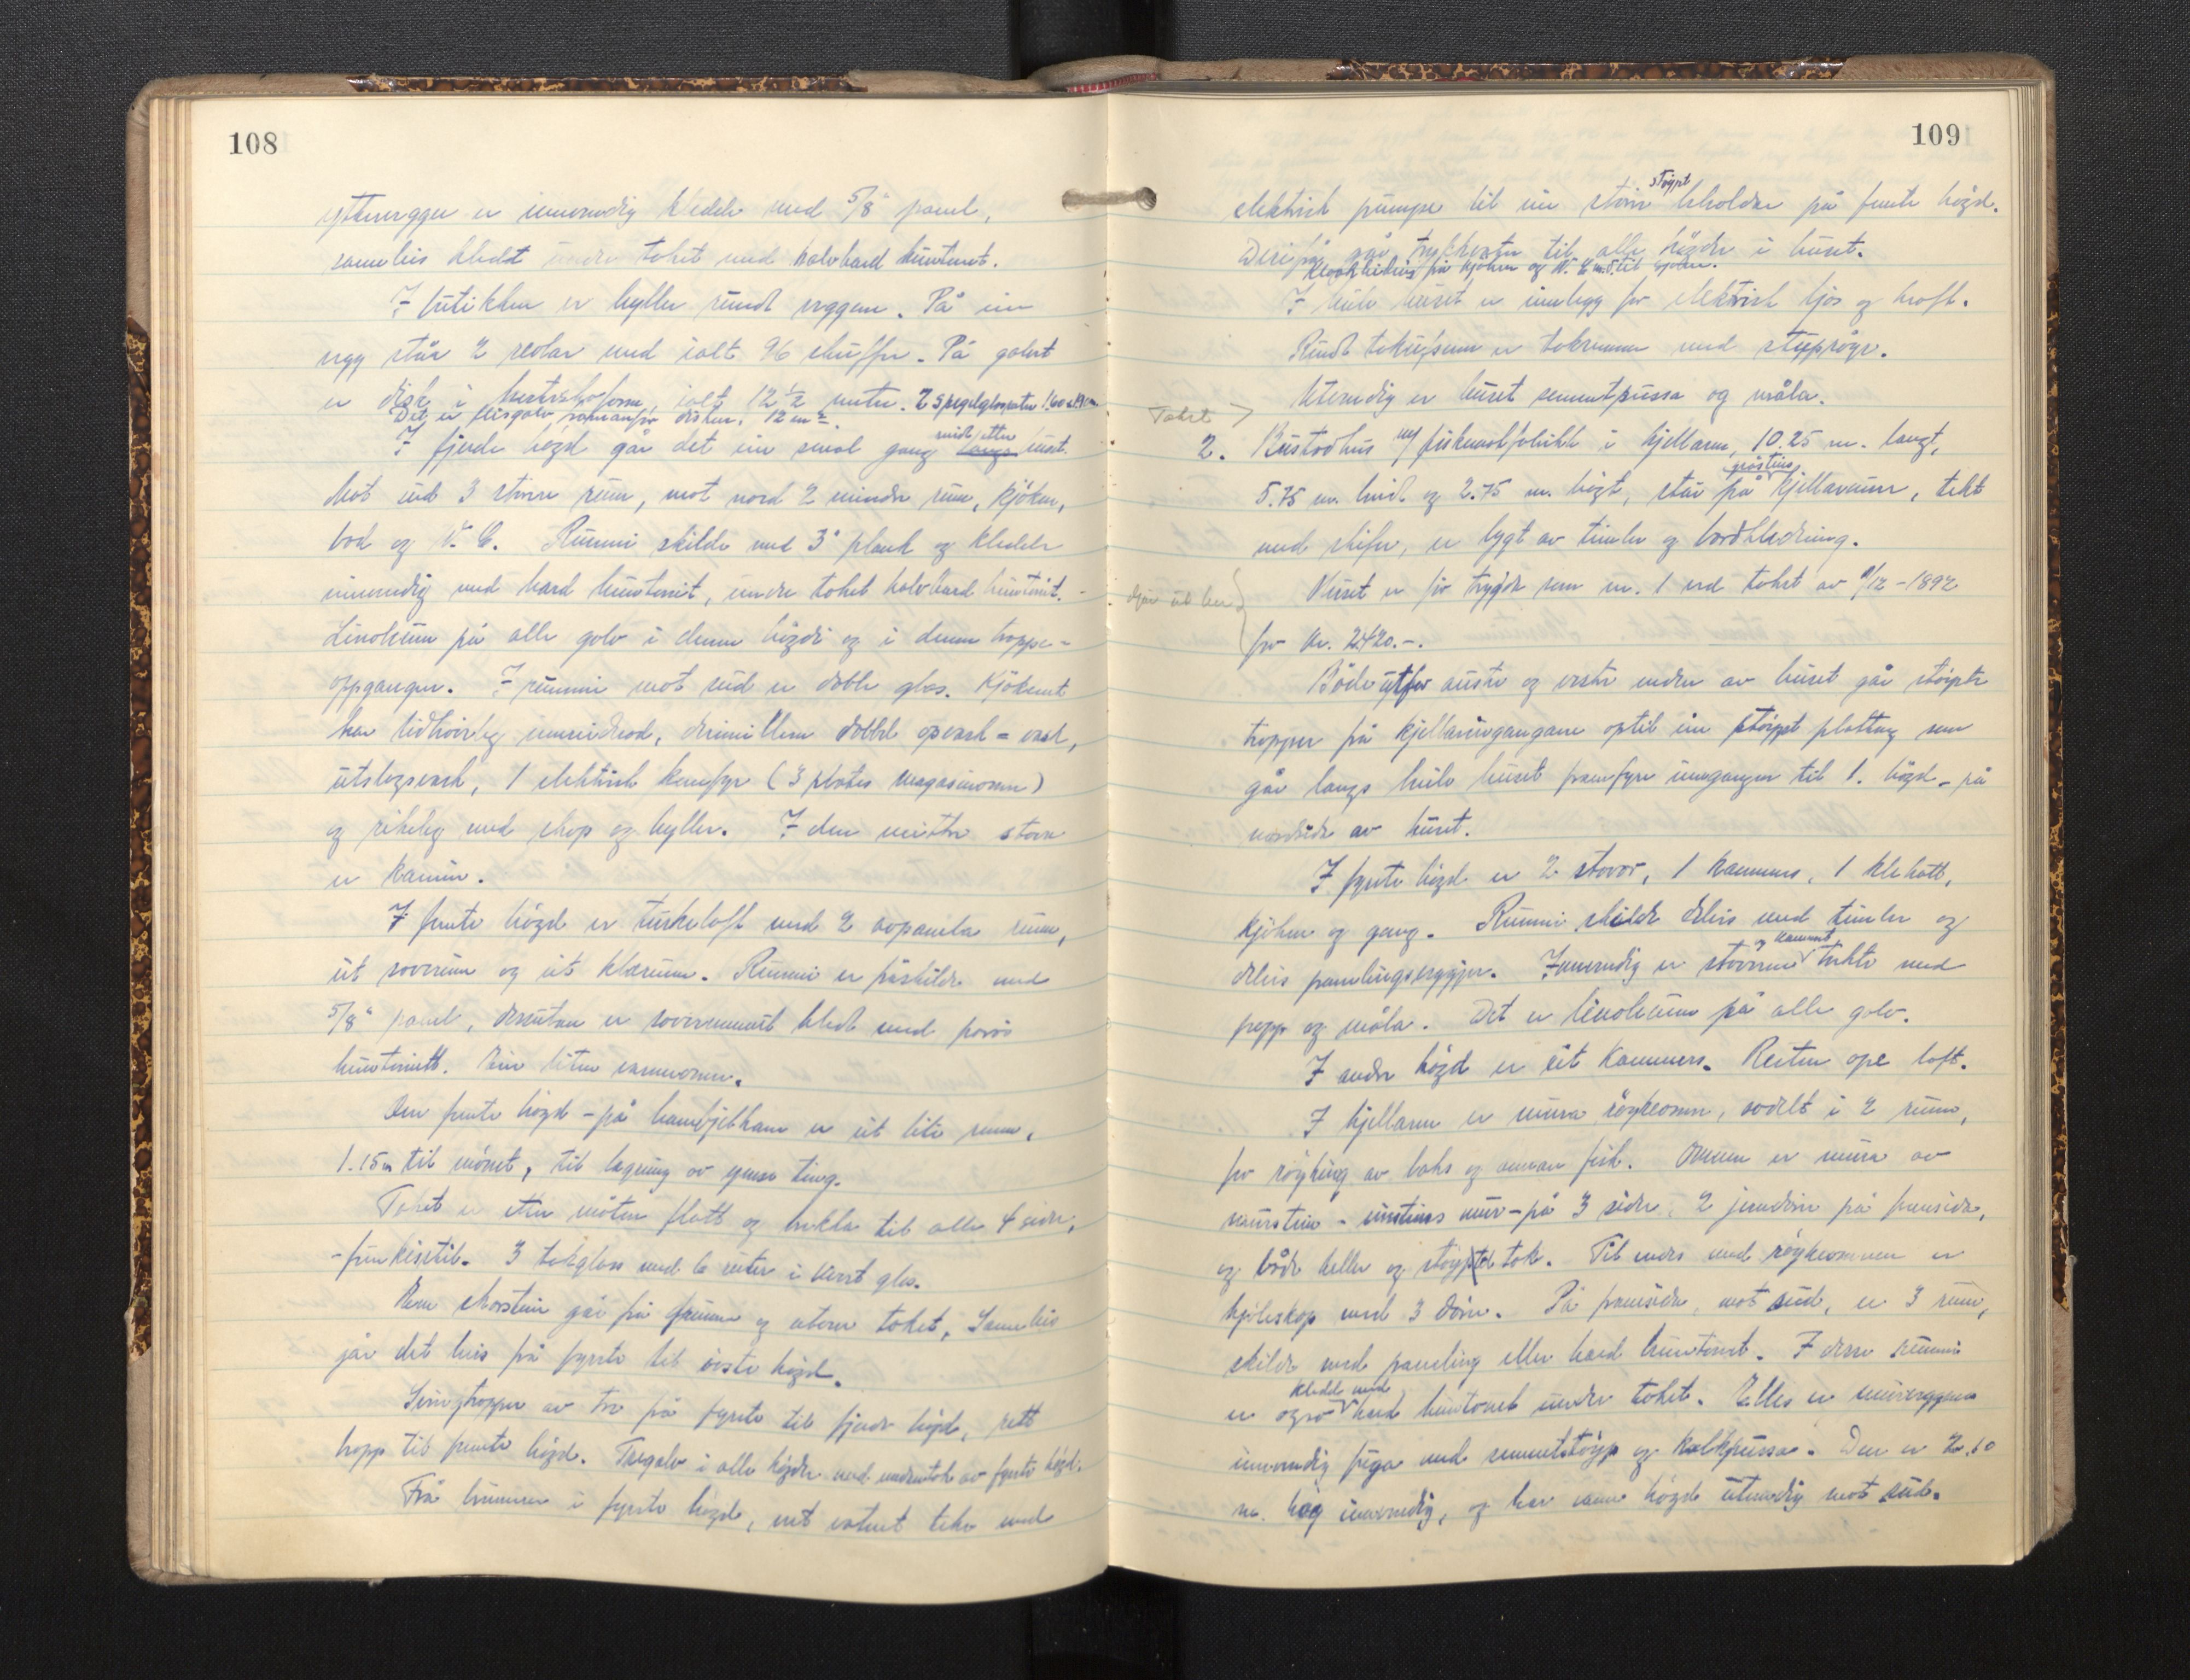 108
ytterveggen er innvendig kledde med 5/8" panel,
sameleis kledt under taket med halvhard huntonit.
I butikken er hyller rundt veggene. På ein
vegg står 2 reolar med ialt 96 skuffer. På golvet
er disk i hesteskoform, ialt 12 1/2 meter. 2 spegelglasruter
Det er flisgolv framanfor disken. 12 m².
I fjerde høgd går det ein smal gang midt etter huset.
Mot sud 3 større rum, mot nord 2 mindre rum, kjøken,
bod og V. C. Rummi skilde med 3" plank og kledde
innvendig med hard huntonit, under taket halvhard huntonit.
Linoleum på alle golv i denne høgdi og i denne trappe-
oppgangen. I rummi mot sud er doble glas. Kjøkenet
har tidhøveleg innreidnad, derimillom dobbel opvask-vask,
utslagsvask, 1 elektrisk komfyr (3 plates magasinomn)
og rikeleg med skap og hyller. I den midtre stova
er kamin.
I femte høgd er turkeloft med 2 avpanela rum,
eit soverum og eit klærum. Rummi er fråskilde med
5/8" panel, dessutan er soverummet kledt med porøs
huntonitt. Ein liten vermeomn.
Over femte høgd - på hanebjelkane er eit lite rum,
1.15 m til mønet, til lagring av ymse ting.
Taket er etter måten flatt og brekka til alle 4 sidor,
- funkisstil. 3 takglas med 6 ruter i kvart glas.
Ein skorstein går frå grunnen og utover taket. Sameleis
går det heis frå fyrste til øvste høgd.
Svingtropper av tre frå fyrste til fjerde høgd, rett
tropp til femte høgd. Tregolv i alle høgder med undantak av fyrste høgd.
Frå brunnen i fyrste høgd, vert vatnet teke med
109
elektrisk pumpe til ein større støypt behaldar på femte høgd.
Derifrå går trykkvatn til alle høgder i huset.
Kloakkleidning frå kjøken og V. C. m.v. til sjøen.
I heile huset er innlegg for elektrisk ljos og kraft.
Rundt takufsene er takrenner med stupprøyr.
Utvendig er huset sementpussa og måla.
Takst >
2. Bustadhus m/ fiskematfabrikk i kjellaren, 10.25 m. langt,
5.75 m. breidt og 2.75 m. høgt, står på gråsteins kjellarmur, tekt
med skifer, er bygt av timber og bordkledning.
Huset er før trygda som nr. 1 ved takst av 9/12 - 1892
for kr. 2420.-.
Både utfor austre og vestre enden av huset går støypte
tropper frå kjellarinngangane optil ein støypt platting som
går langs heile huset framfyre inngangen til 1. høgd - på
nordsida av huset.
I fyrste høgd er 2 stovor, 1 kammers, 1 klekott,
kjøken og gang. Rummi skilde delvis med timber og
delvis panelingsveggjer. Innvendig er stovone og kammerset trekte med
papp og måla. Det er linoleum på alle golv.
I andre høgd er eit kammers. Resten ope loft.
I kjellaren er mura røykeomn, avdelt i 2 rum,
for røyking av laks og annan fisk. Omnen er mura av
murstein - einsteins mur - på 3 sidor, 2 jerndører på framsida,
og både heller og støypt tak. Til vers med røykeomnen er
kjøleskap med 3 dører. På framsida, mot sud, er 3 rum,
skilde med paneling eller hard huntonit. I desse rummi
er også kledd med hard huntonit under taket. Elles er murveggene
innvendig fuga med sementstøyp og kalkpussa. Den er 2.60
m. høg innvendig, og har same høgde utvendig mot sud.